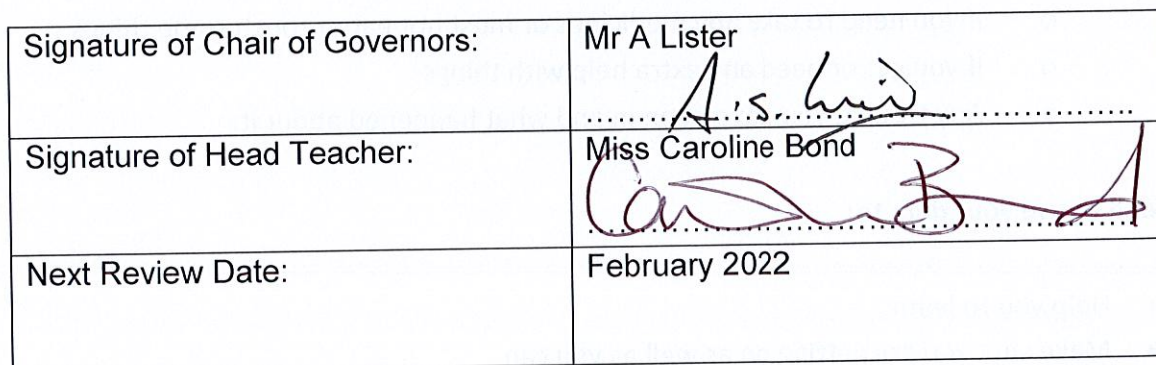 Signature of Chair of Governors:
Mr A Lister
Signature of Head Teacher:
Miss Caroline Bond
Next Review Date:
February 2022